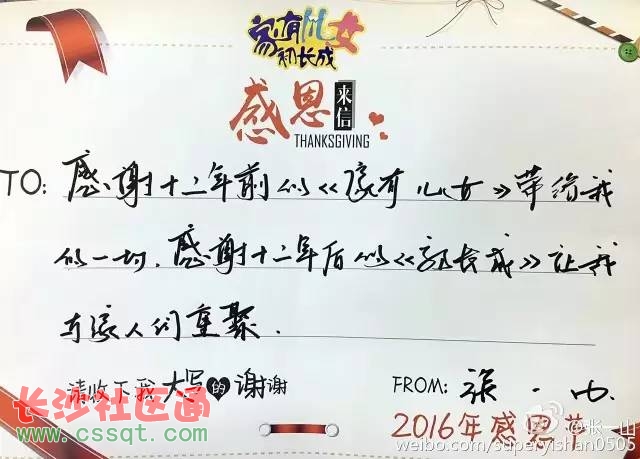 家有儿女
初长成
感恩来信
THANKSGIVING
TO: 感谢十二年前的《家有儿女》带给我
的一切,感谢十二年后的《初长成》让我
与家人们重聚.
请收下我大写的谢谢
FROM: 张一山
2016年感恩节
长沙社区通
www.cssqt.com
@张一山
weibo.com/superyishan0505